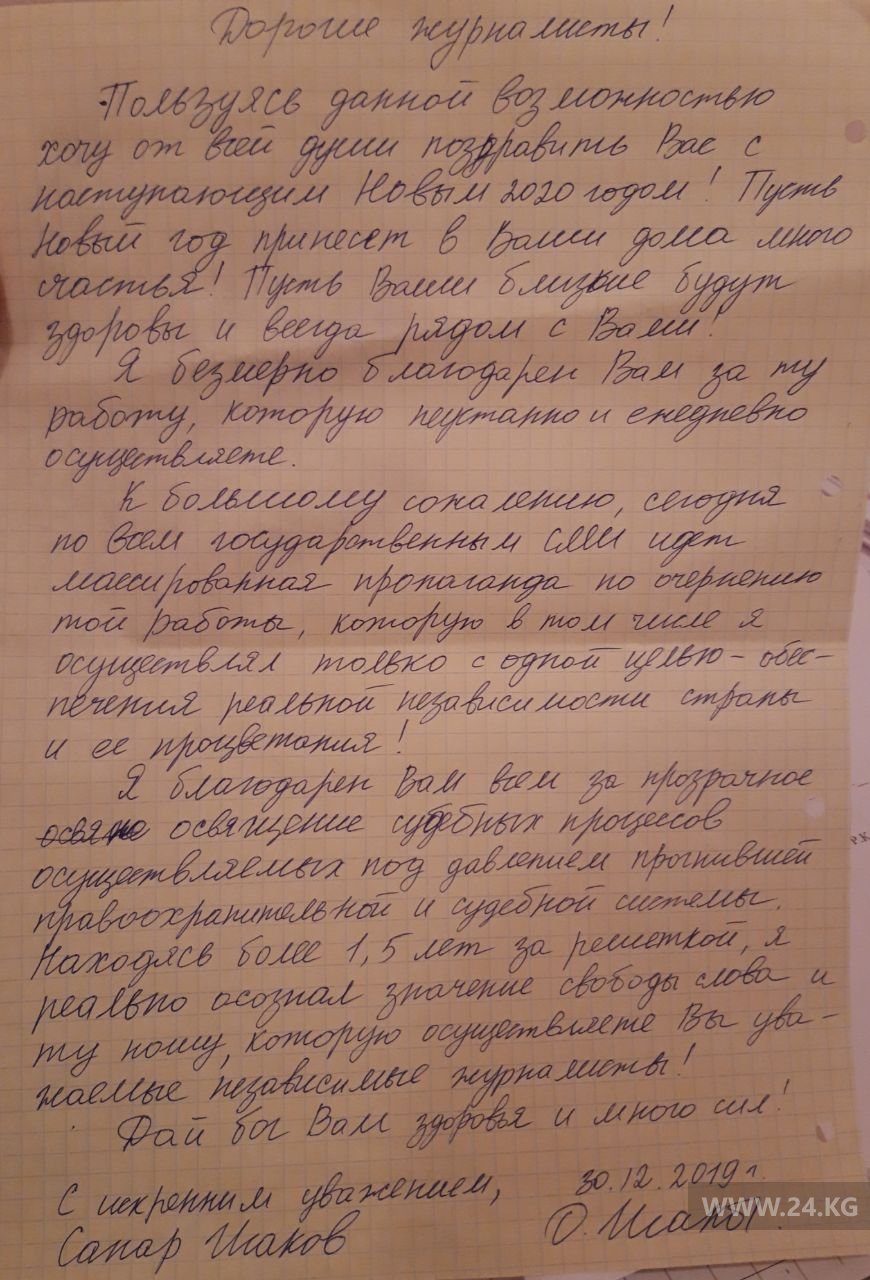 Дорогие журналисты!
Пользуясь данной возможностью
хочу от всей души поздравить Вас с
наступающим Новым 2020 годом! Пусть
Новый год принесет в Ваши дома много
счастья! Пусть Ваши близкие будут
здоровы и всегда рядом с Вами!
Я безмерно благодарен Вам за ту
работу, которую неустанно и ежедневно
осуществляете.
К большому сожалению, сегодня
по всем государственным СМИ идет
массированная пропаганда по очернению
той работы, которую в том числе я
осуществлял только с одной целью – обес-
печения реальной независимости страны
и ее процветания!
Я благодарен Вам всем за прозрачное
освящение судебных процессов
осуществляемых под давлением прогнившей
правоохранительной и судебной системы.
Находясь более 1,5 лет за решеткой, я
реально осознал значение свободы слова и
ту ношу, которую осуществляете Вы ува-
жаемые независимые журналисты!
Дай бог Вам здоровья и много сил!
С искренним уважением, 30.12.2019 г.
Сапар Исаков
WWW.24.KG